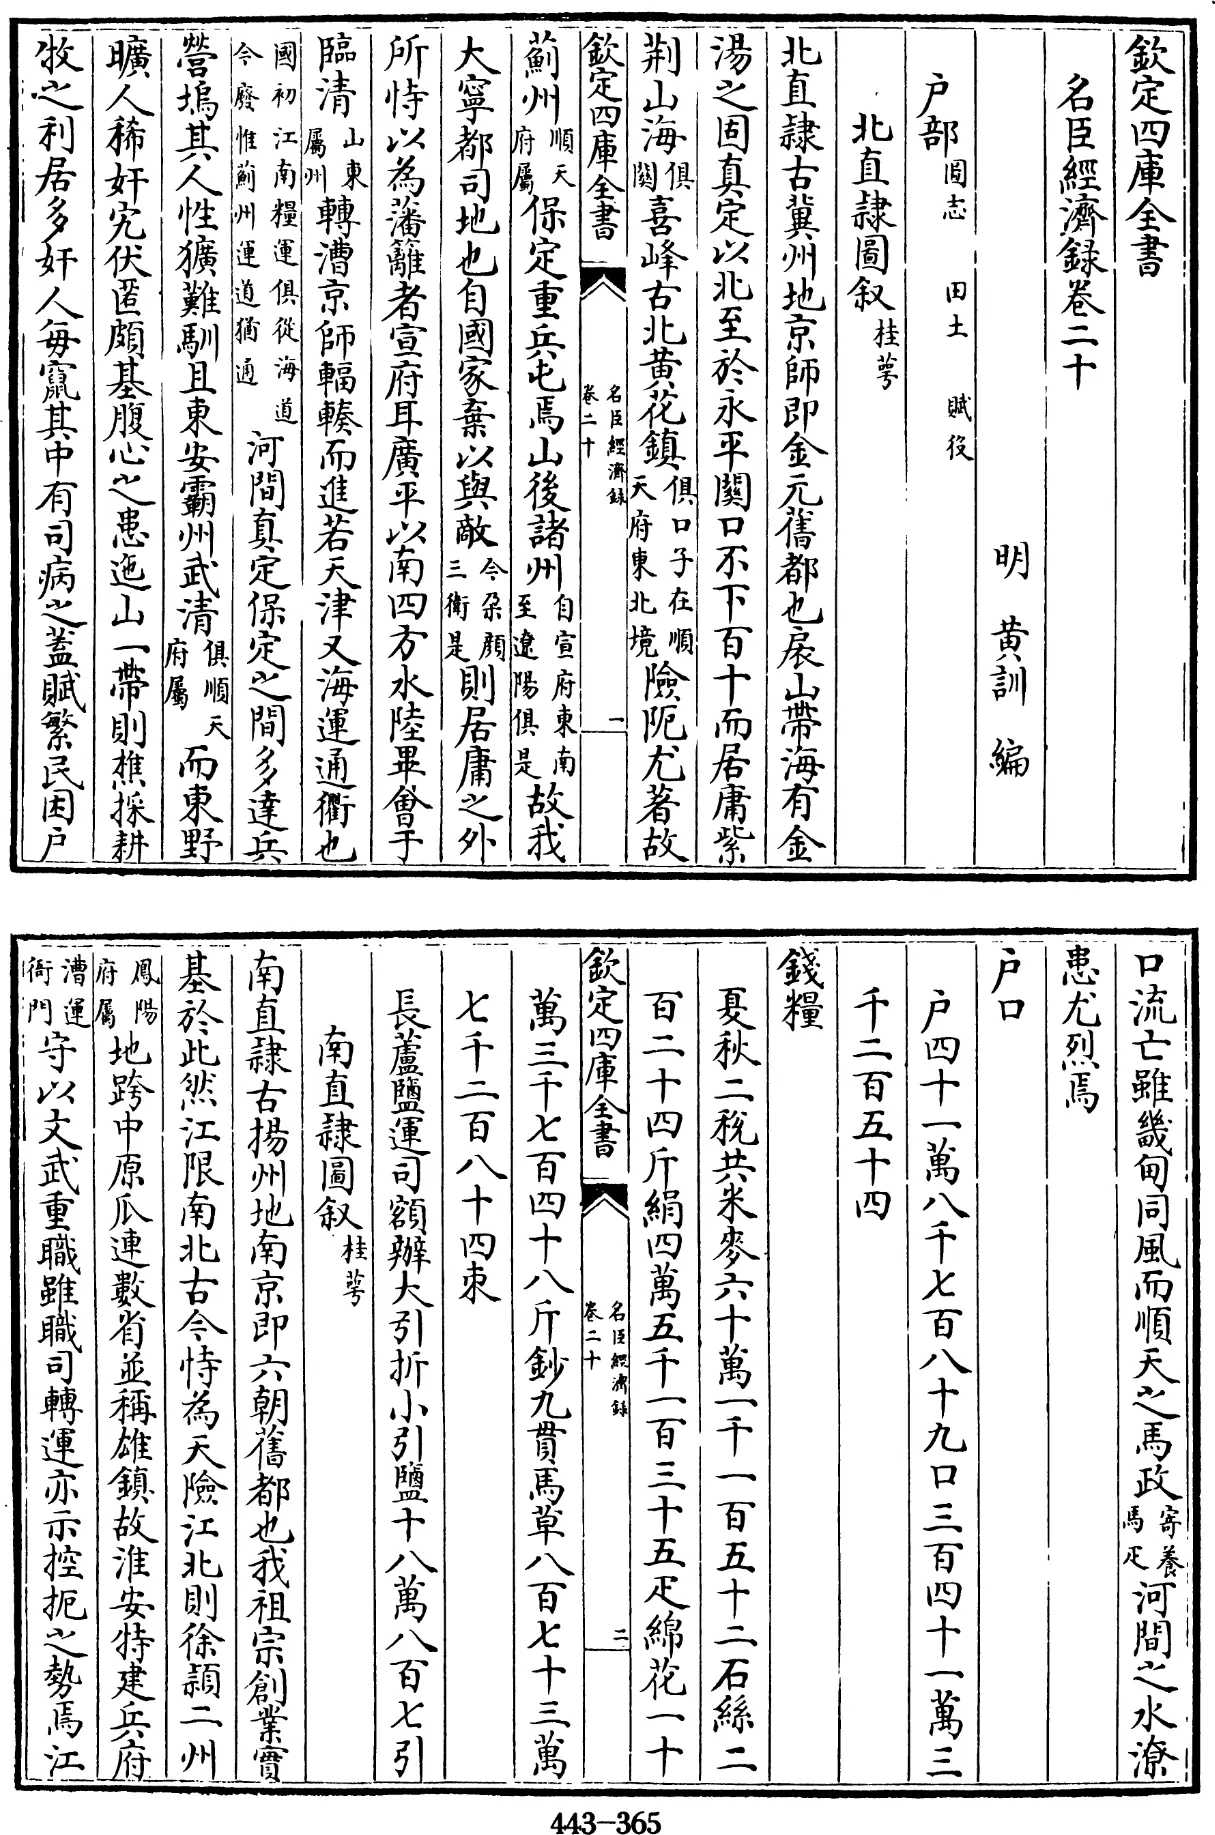 欽定四庫全書
名臣經濟録卷二十
明 黄訓 編
户部 圖志 田土 賦役
北直隷圖叙 桂萼
北直隷古冀州地京師即金元舊都也扆山帶海有金
湯之固真定以北至於永平關口不下百十而居庸紫
荆山海俱關喜峰古北黄花鎮俱口子在順天府東北境險阨尤著故
欽定四庫全書 名臣經濟録 卷二十 一
薊州順天府屬保定重兵屯焉山後諸州自宣府東南至遼陽俱是故我
大寧都司地也自國家棄以與敵今朶顔三衛是則居庸之外
所恃以為藩籬者宣府耳廣平以南四方水陸畢會于
臨清山東屬州轉漕京師輻輳而進若天津又海運通衢也
國初江南糧運俱從海道今廢惟薊州運道猶通河間真定保定之間多達兵
營塢其人性獷難馴且東安霸州武清俱順天府屬而東野
曠人稀奸宄伏匿頗基腹心之患迤山一帶則樵採耕
牧之利居多奸人每竄其中有司病之蓋賦繁民困户
口流亡雖畿甸同風而順天之馬政寄養馬疋河間之水潦
患尤烈焉
户口
户四十一萬八千七百八十九口三百四十一萬三
千二百五十四
錢糧
夏秋二税共米麥六十萬一千一百五十二石絲二
百二十四斤絹四萬五千一百三十五疋綿花一十
欽定四庫全書 名臣經濟録 卷二十 二
萬三千七百四十八斤鈔九貫馬草八百七十三萬
七千二百八十四束
長蘆鹽運司額辦大引折小引鹽十八萬八百七引
南直隷圖叙 桂萼
南直隷古揚州地南京即六朝舊都也我祖宗創業實
基於此然江限南北古今恃為天險江北則徐潁二州
鳳陽府屬地跨中原瓜連數省並稱雄鎮故淮安特建兵府
漕運衙門守以文武重職雖職司轉運亦示控扼之勢焉江
443-365